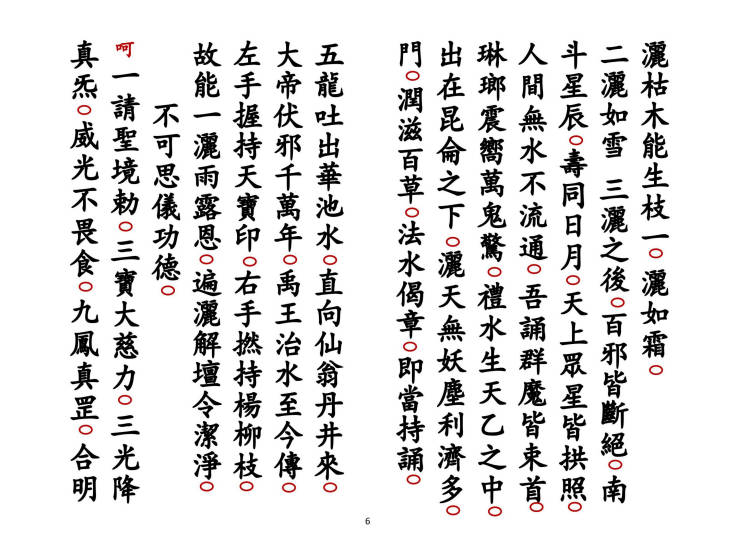 灑枯木能生枝一○灑如霜○
二灑如雪 三灑之後○百邪皆斷絕○南
斗星辰○壽同日月○天上眾星皆拱照○
人間無水不流通○吾誦群魔皆束首○
琳瑯震嚮萬鬼驚○禮水生天乙之中○
出在昆侖之下○灑天無妖塵利濟多○
門○潤滋百草○法水偈章○即當持誦○
五龍吐出華池水○直向仙翁丹井來○
大帝伏邪千萬年○禹王治水至今傳○
左手握持天寶印○右手撚持楊柳枝○
故能一灑雨露恩○遍灑解壇令潔淨○
不可思儀功德○
呵一請聖境勅○三寶大慈力○三光降
真炁○威光不畏食○九鳳真罡○合明
6